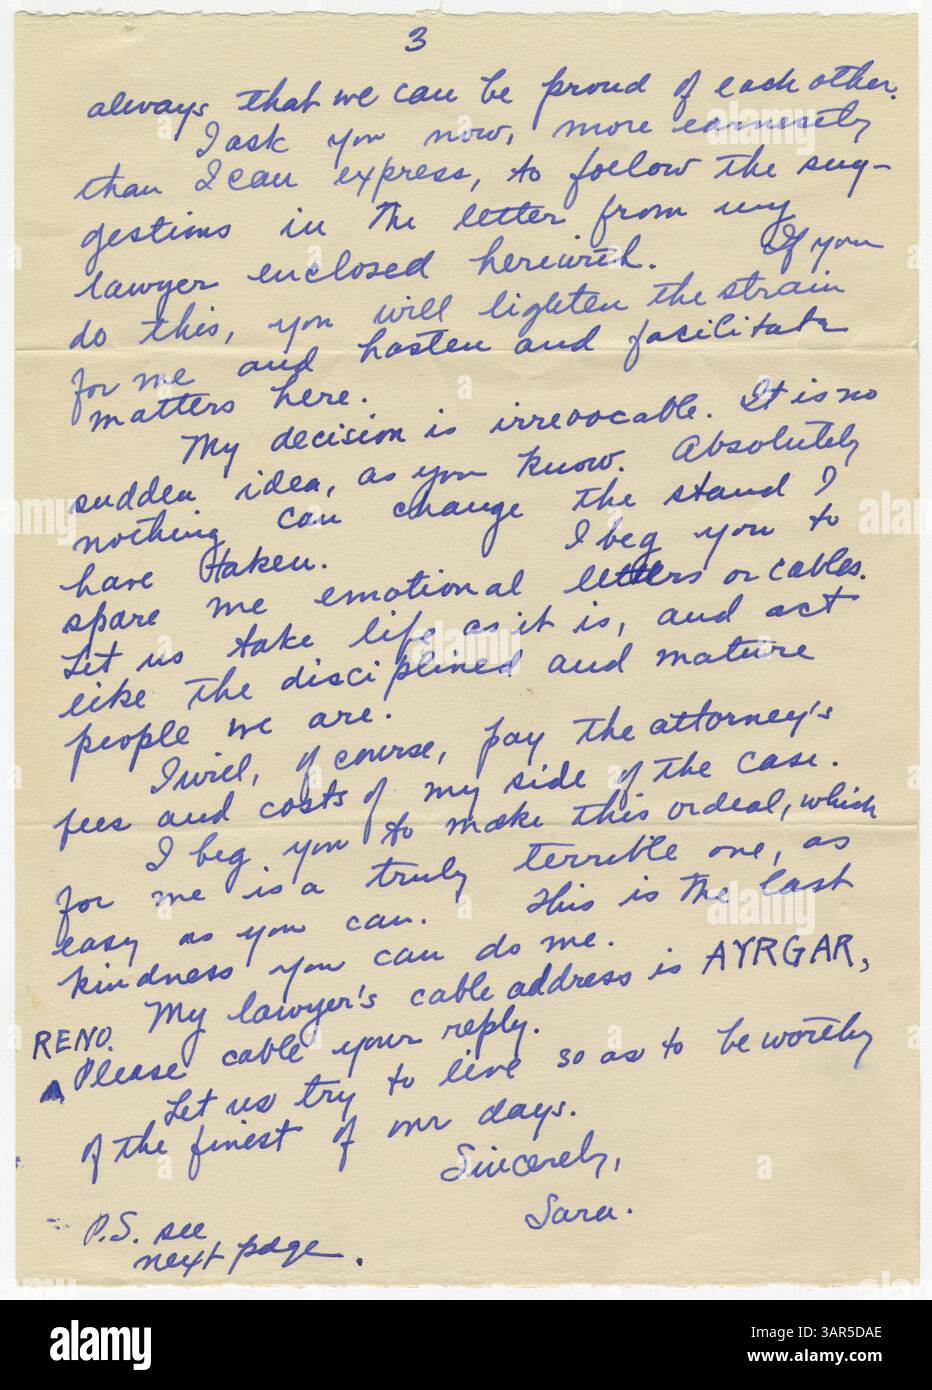 3
always that we can be proud of each other.
I ask you now, more earnestly
than I can express, to follow the sug-
gestions in the letter from my
lawyer enclosed herewith. If you
do this, you will lighten the strain
for me and hasten and facilitate
matters here.
My decision is irrevocable. It is no
sudden idea, as you know. Absolutely
nothing can change the stand I
have taken. I beg you to
spare me emotional letters or cables.
Let us take life as it is, and act
like the disciplined and mature
people we are.
I will, of course, pay the attorney's
fees and costs of my side of the case.
I beg you to make this ordeal, which
for me is a truly terrible one, as
easy as you can. This is the last
kindness you can do me.
My lawyer's cable address is AYRGAR,
RENO.
Please cable your reply.
Let us try to live so as to be worthy
of the finest of our days.
Sincerely,
Sara.
P.S. see
next page.
alamy
Image ID: 3AR5DAE
www.alamy.com